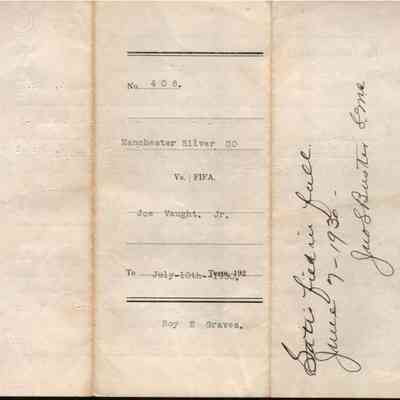 No. 408.
Manchester Silver CO
Vs. FIFA.
Joe Vaught. Jr.
To July-10th-1930. Term, 192
Roy E Graves.
Satisfied in full.
June 7-1930-
Jno S Buster